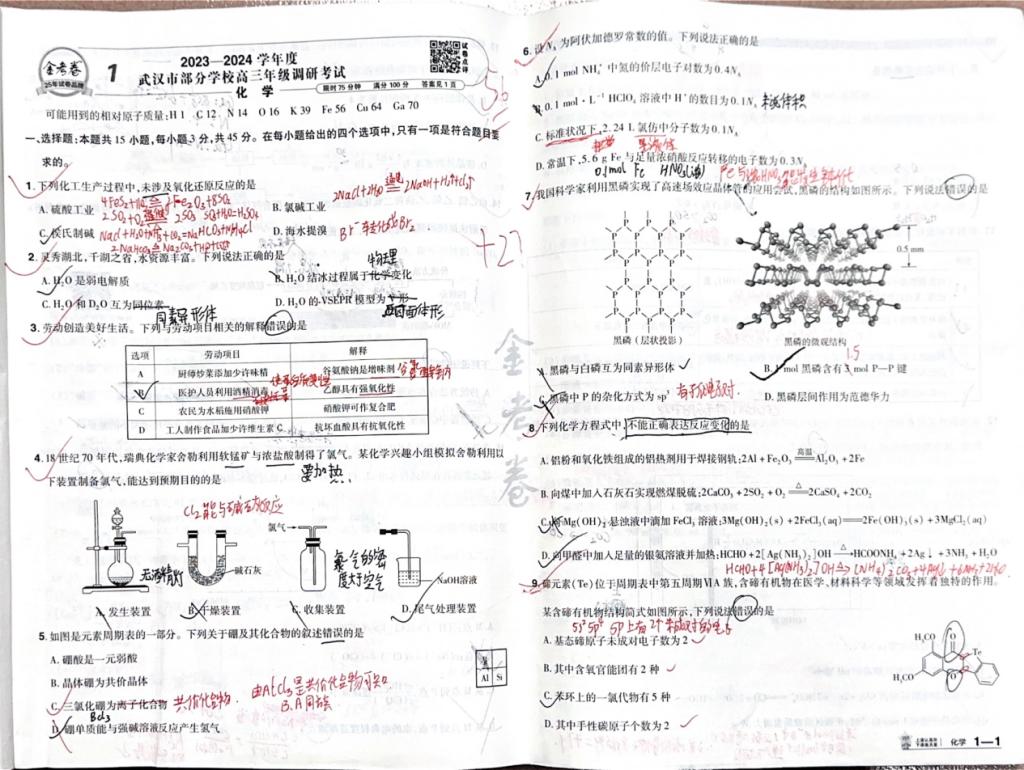 金考卷
25年试卷品牌
1
2023—2024 学年度
武汉市部分学校高三年级调研考试
化 学
限时 75 分钟 满分 100 分 答案见 1 页
试卷点评
可能用到的相对原子质量:H 1 C 12 N 14 O 16 K 39 Fe 56 Cu 64 Ga 70
一、选择题:本题共 15 小题,每小题 3 分,共 45 分。在每小题给出的四个选项中,只有一项是符合题目要
求的。
1.下列化工生产过程中,未涉及氧化还原反应的是
A. 硫酸工业
B. 氯碱工业
2NaCl+2H₂O 2NaOH+H₂↑+Cl₂↑
C. 侯氏制碱
D. 海水提溴
2.灵秀湖北,千湖之省,水资源丰富。下列说法正确的是
物理
A. H₂O 是弱电解质
B. H₂O 结冰过程属于化学变化
C. H₂O 和 D₂O 互为同位素
D. H₂O 的 VSEPR 模型为 V 形
四面体形
3.劳动创造美好生活。下列与劳动项目相关的解释错误的是
选项 劳动项目 解释
A 厨师炒菜添加少许味精 谷氨酸钠是增味剂
B 医护人员利用酒精消毒 乙醇具有强氧化性
C 农民为水稻施用硝酸钾 硝酸钾可作复合肥
D 工人制作食品加少许维生素 C 抗坏血酸具有抗氧化性
4.18 世纪 70 年代,瑞典化学家舍勒利用软锰矿与浓盐酸制得了氯气。某化学兴趣小组模拟舍勒利用以
下装置制备氯气,能达到预期目的的是
要加热
Cl₂能与碱石灰反应
氯气
碱石灰
氯气的密
度大于空气
NaOH溶液
无酒精灯
A. 发生装置
B. 干燥装置
C. 收集装置
D. 尾气处理装置
5.如图是元素周期表的一部分。下列关于硼及其化合物的叙述错误的是
A. 硼酸是一元弱酸
B. 晶体硼为共价晶体
C. 三氯化硼为离子化合物 共价化合物
由AlCl₃是共价化合物可知
BCl₃
D. 硼单质能与强碱溶液反应产生氢气
Al Si
+2?
6.设 Nₐ 为阿伏加德罗常数的值。下列说法正确的是
A. 0.1 mol NH₄⁺ 中氮的价层电子对数为 0.4Nₐ
B. 0.1 mol·L⁻¹ HClO₄ 溶液中 H⁺ 的数目为 0.1Nₐ 未说体积
C. 标准状况下,2.24 L 氯仿中分子数为 0.1Nₐ
D. 常温下,5.6 g Fe 与足量浓硝酸反应转移的电子数为 0.3Nₐ
0.1mol Fe HNO₃(浓)
7.我国科学家利用黑磷实现了高速场效应晶体管的应用尝试,黑磷的结构如图所示。下列说法错误的是
0.5 nm
黑磷(层状投影)
黑磷的微观结构
1.5
A. 黑磷与白磷互为同素异形体
B. 1 mol 黑磷含有 3 mol P—P 键
C. 黑磷中 P 的杂化方式为 sp²
D. 黑磷层间作用为范德华力
8.下列化学方程式中,不能正确表达反应变化的是
A. 铝粉和氧化铁组成的铝热剂用于焊接钢轨:2Al + Fe₂O₃ 高温 Al₂O₃ + 2Fe
B. 向煤中加入石灰石实现燃煤脱硫:2CaCO₃ + 2SO₂ + O₂ △ 2CaSO₄ + 2CO₂
C. 向 Mg(OH)₂ 悬浊液中滴加 FeCl₃ 溶液:3Mg(OH)₂(s) + 2FeCl₃(aq) ══ 2Fe(OH)₃(s) + 3MgCl₂(aq)
D. 向甲醛中加入足量的银氨溶液并加热:HCHO + 2[Ag(NH₃)₂]OH △ HCOONH₄ + 2Ag↓ + 3NH₃ + H₂O
HCHO+4[Ag(NH₃)₂]OH △ (NH₄)₂CO₃+4Ag↓+6NH₃+2H₂O
9.碲元素(Te)位于周期表中第五周期ⅥA 族,含碲有机物在医学、材料科学等领域发挥着独特的作用。
某含碲有机物结构简式如图所示,下列说法错误的是
A. 基态碲原子未成对电子数为 2
B. 其中含氧官能团有 2 种
C. 苯环上的一氯代物有 5 种
D. 其中手性碳原子个数为 2
H₃CO
H₃CO
O
Te
O
化学 1—1